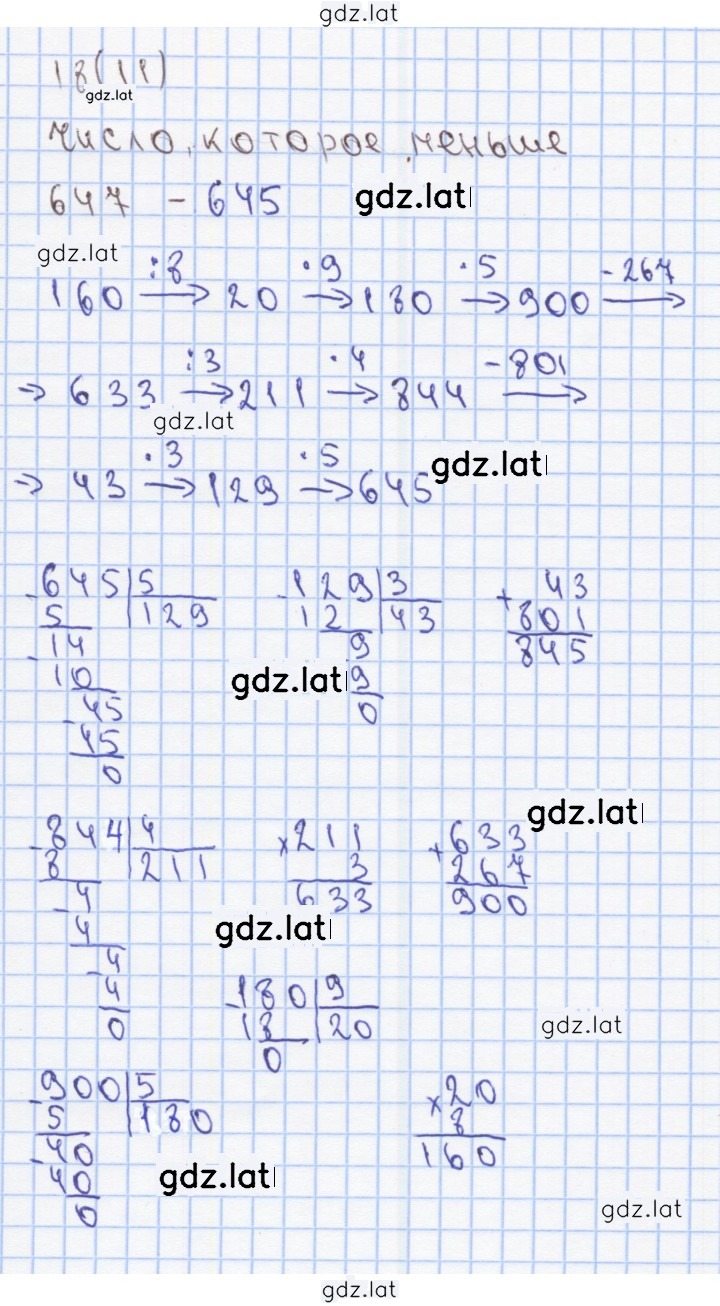 gdz.lat
18(11)
gdz.lat
число, которое меньше
647 - 645 gdz.lat
gdz.lat
:8 ·9 ·5 -267
160 → 20 → 180 → 900 →
:3 ·4 -801
→ 633 → 211 → 844 →
gdz.lat
·3 ·5
→ 43 → 129 → 645 gdz.lat
- 645 | 5 - 129 | 3 + 43
5 | 129 12 | 43 801
- 14 9 845
10 gdz.lat 9
- 45 0
45
0
gdz.lat
- 844 | 4 × 211 + 633
8 | 211 3 267
- 4 633 900
4 gdz.lat
- 4
4 - 180 | 9
0 18 | 20 gdz.lat
0
- 900 | 5 × 20
5 | 180 8
- 40 160
40 gdz.lat
0 gdz.lat
gdz.lat